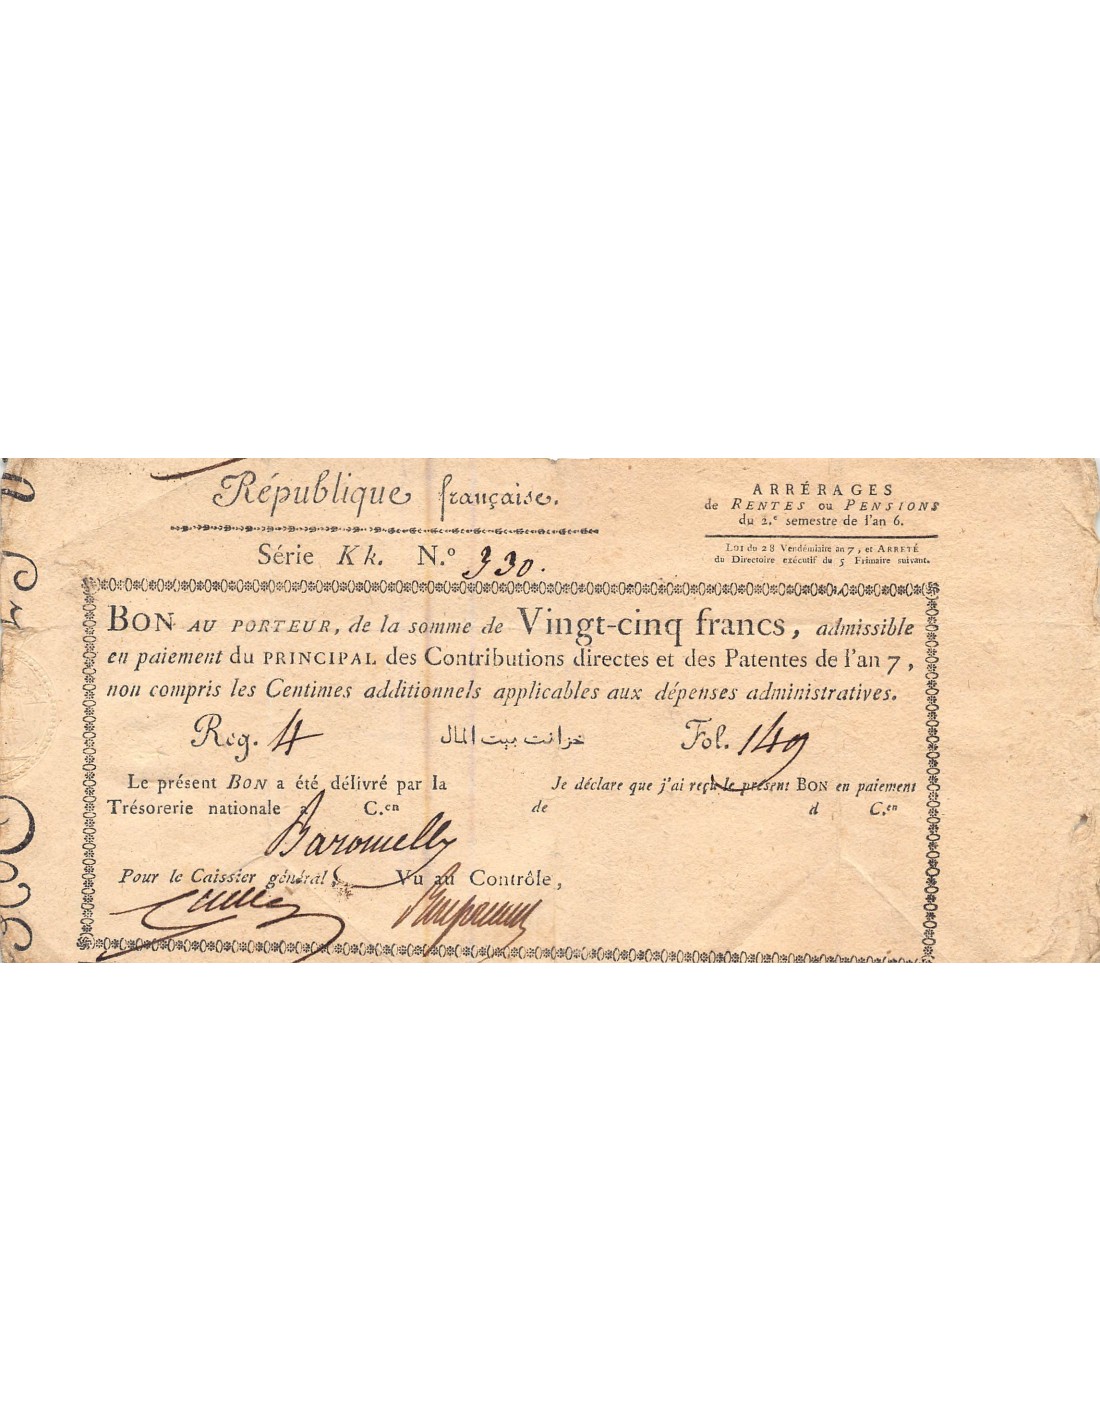 République française.
ARRÉRAGES
de RENTES ou PENSIONS
du 2.e semestre de l'an 6.
Loi du 28 Vendémiaire an 7, et ARRETÉ
du Directoire exécutif du 5 Frimaire suivant.
Série Kk. N.o 330.
BON AU PORTEUR, de la somme de Vingt-cinq francs, admissible
en paiement du PRINCIPAL des Contributions directes et des Patentes de l'an 7,
non compris les Centimes additionnels applicables aux dépenses administratives.
Reg. 4 خزانت بيت المال Fol. 149
Le présent BON a été délivré par la
Trésorerie nationale a C.en
Je déclare que j'ai reçu le présent BON en paiement
de d C.en
Pour le Caissier général, Vu au Contrôle,